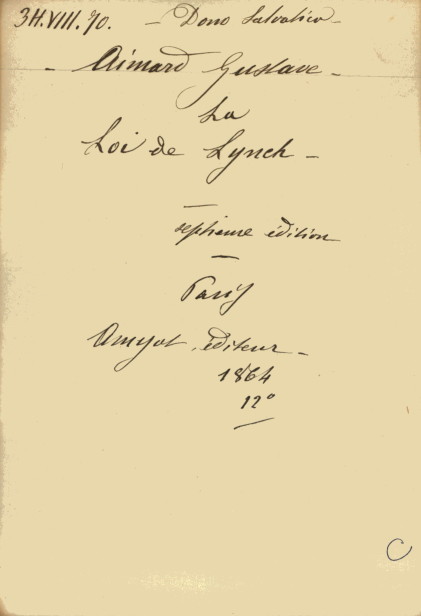 34.VIII.90. - Dono Salvatico -
- Aimard Gustave -
La
Loi de Lynch -
septieme édition
Paris
Amyot. éditeur -
1864
12°
C